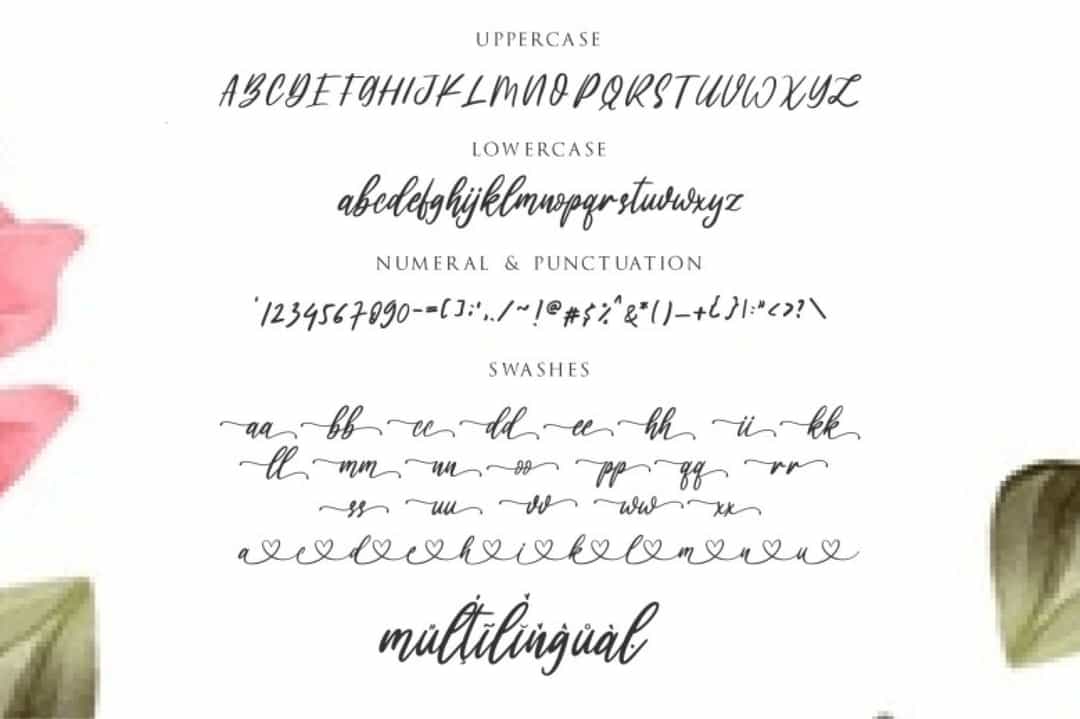 UPPERCASE
ABCDEFGHIJKLMNOPQRSTUVWXYZ
LOWERCASE
abcdefghijklmnopqrstuvwxyz
NUMERAL & PUNCTUATION
'1234567890-=[];',./~!@#$%^&*()_+{}|:"<>?\
SWASHES
aa bb cc dd ee hh ii kk
ll mm nn oo pp qq rr
ss uu vv ww xx
a♡c♡d♡e♡h♡i♡k♡l♡m♡n♡u♡
můlţĩlĭṅĝůàl